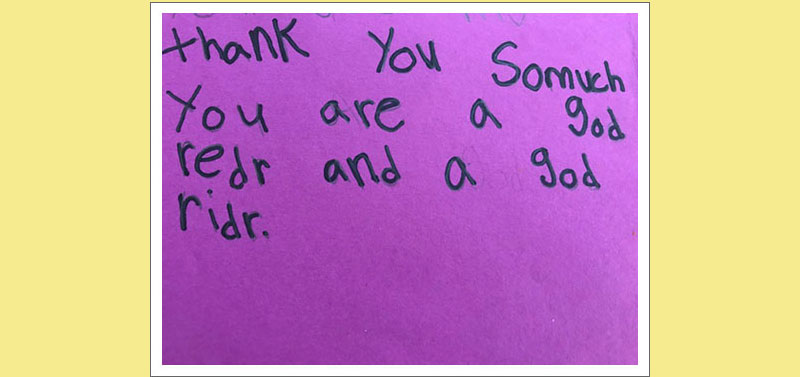 thank you Somuch
You are a god
redr and a god
ridr.